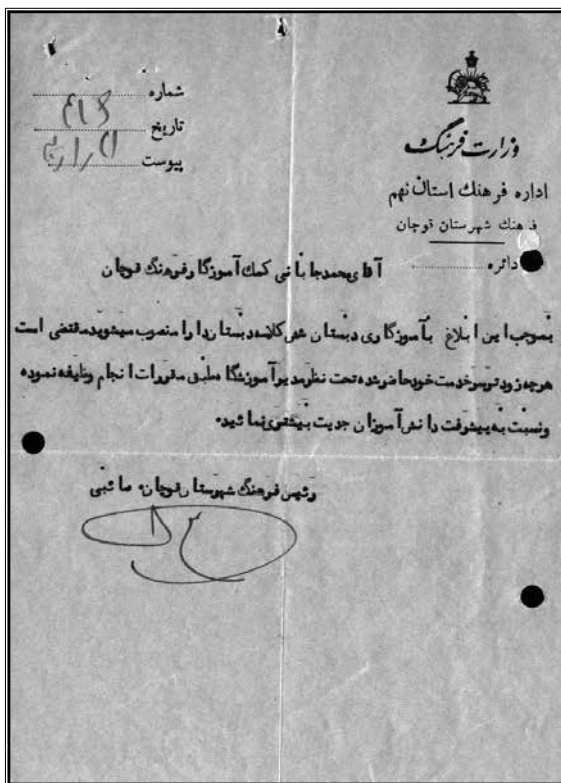 شماره
تاریخ
پیوست
وزارت فرهنگ
اداره فرهنك استان نهم
فرهنك شهرستان قوچان
دائره
آقای محمد جابانی کمك آموزگار فرهنگ قوچان
بموجب این ابلاغ بآموزگاری دبستان شش کلاسه دبستان دارا منصوب میشوید مقتضی است
هرچه زودتر سر خدمت خود حاضر شده تحت نظر مدیر آموزشگا مطبق مقررات انجام وظیفه نموده
ونسبت به پیشرفت دانش آموزان جدیت بیشتری نمائید.
رئیس فرهنگ شهرستان قوچان.